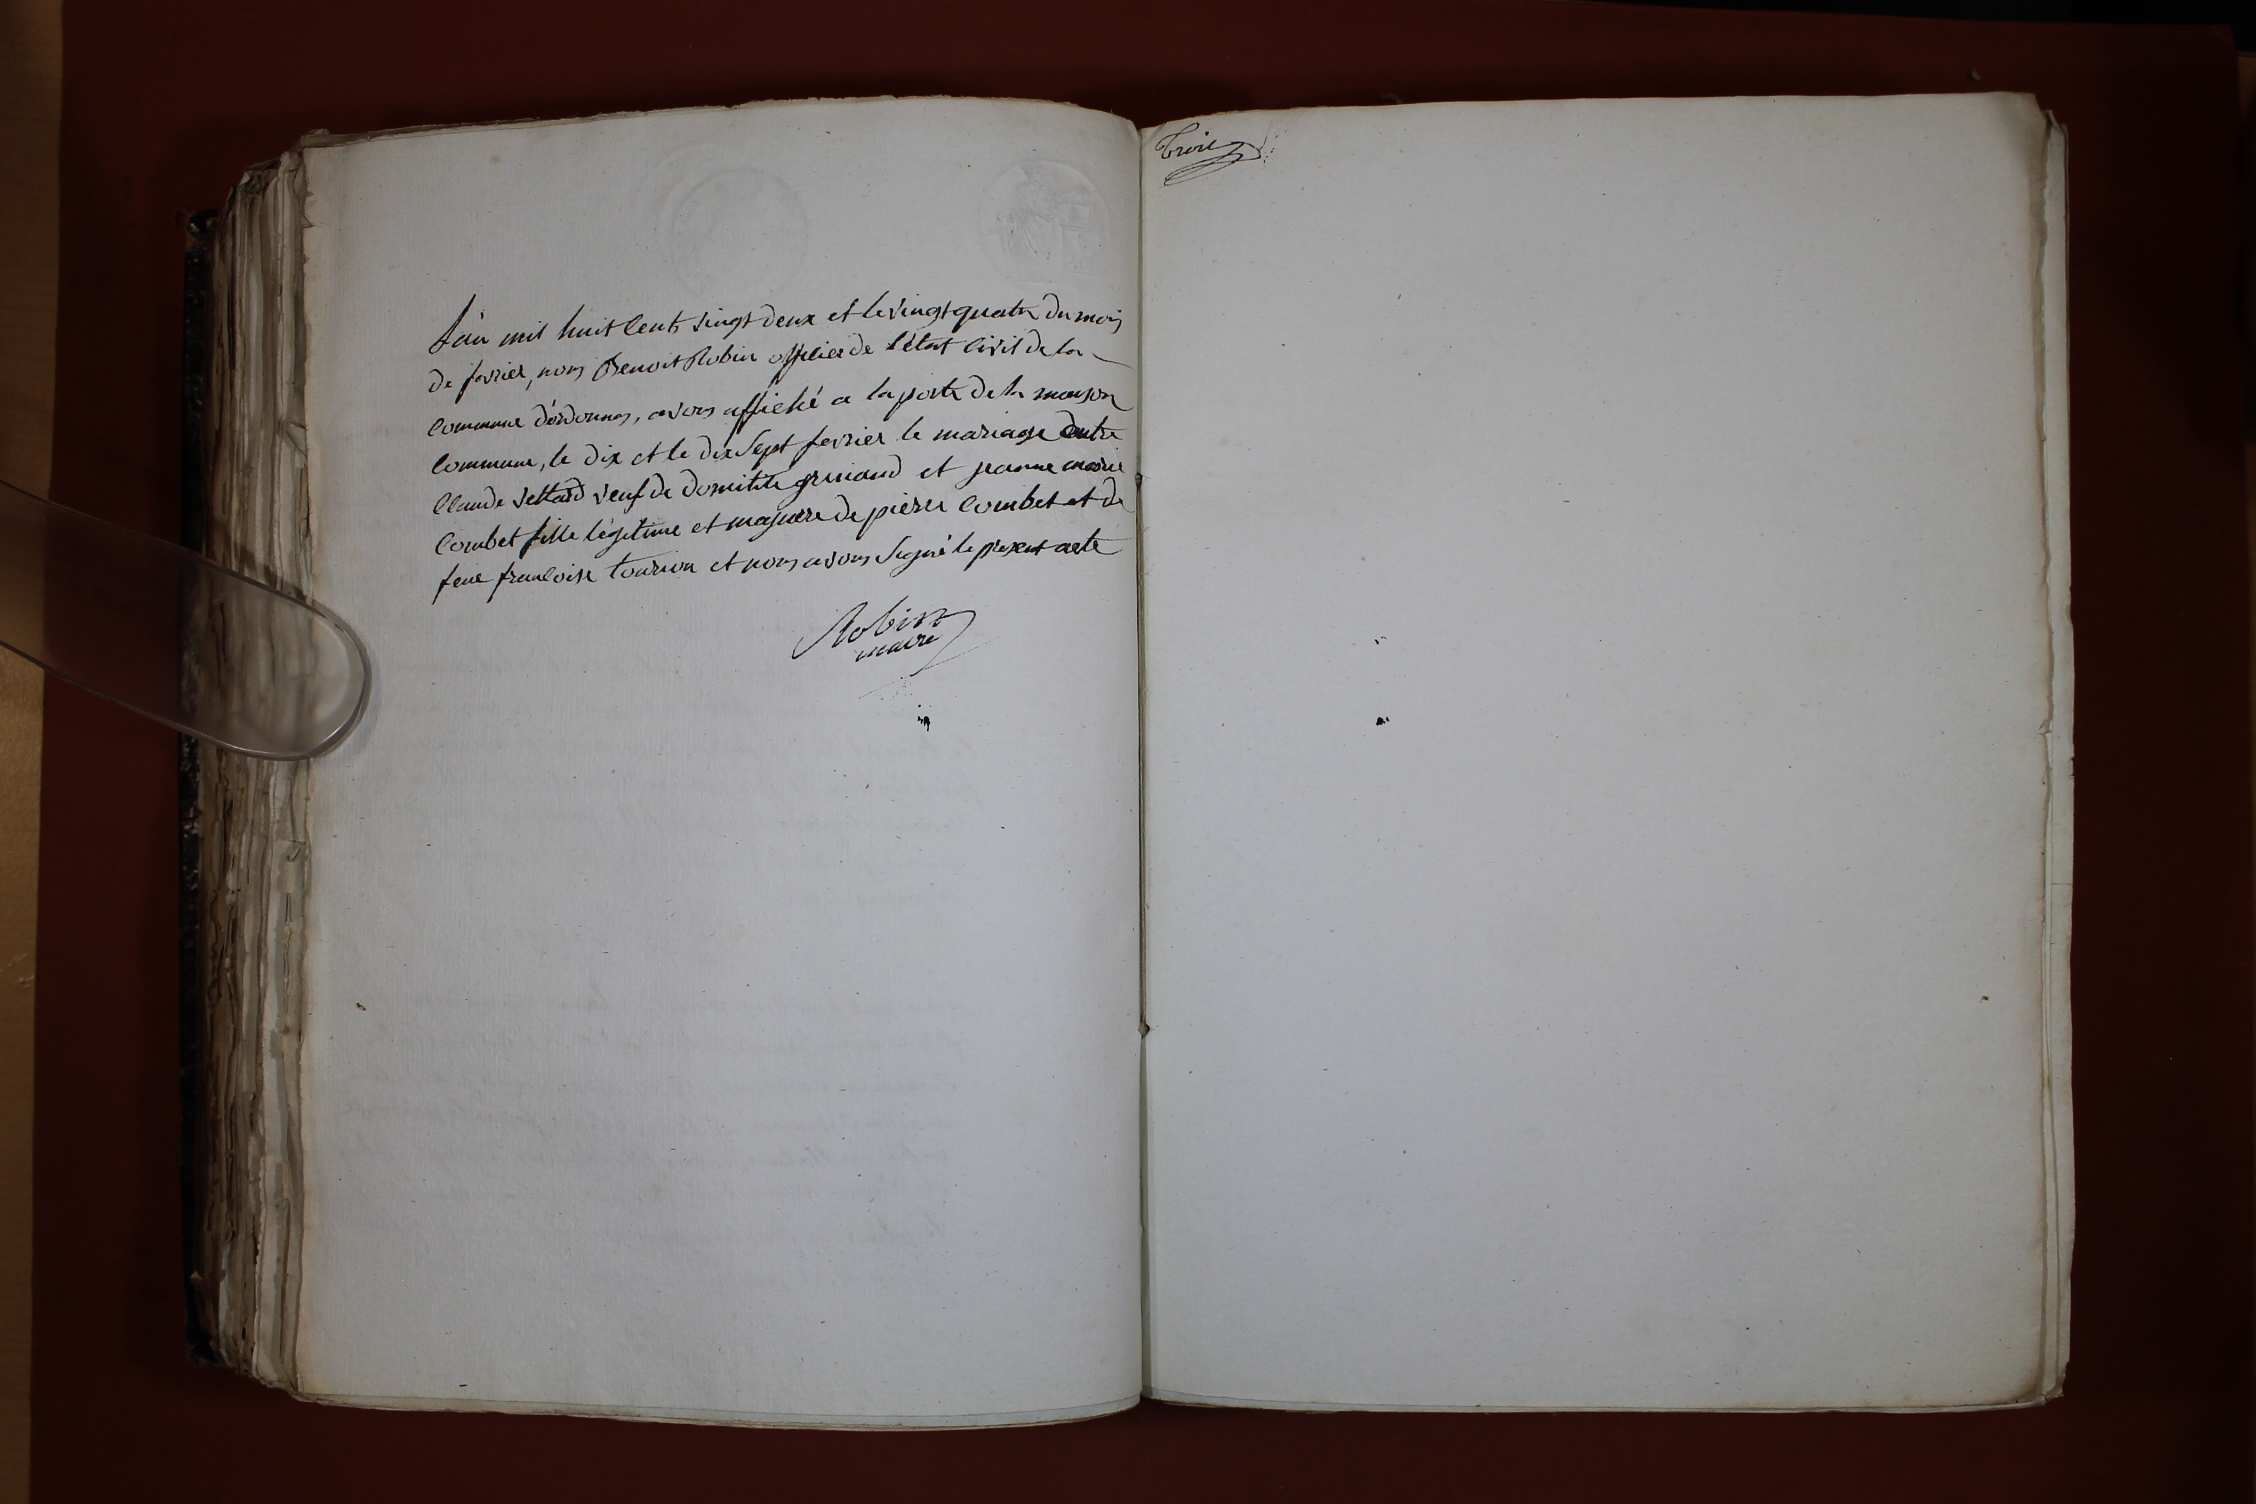 L'an mil huit cent vingt deux et le vingt quatre du mois
de fevrier, nous Benoit Robin officier de l'état civil de la
commune d'ordonnas, avons affiché a la porte de la maison
commune, le dix et le dix sept fevrier le mariage entre
Claude vettard veuf de domitile grinand et jeanne marie
Combet fille légitime et majeure de pierre Combet et de
feue françoise tournion et nous avons signé le present acte
Robin
maire
Trois